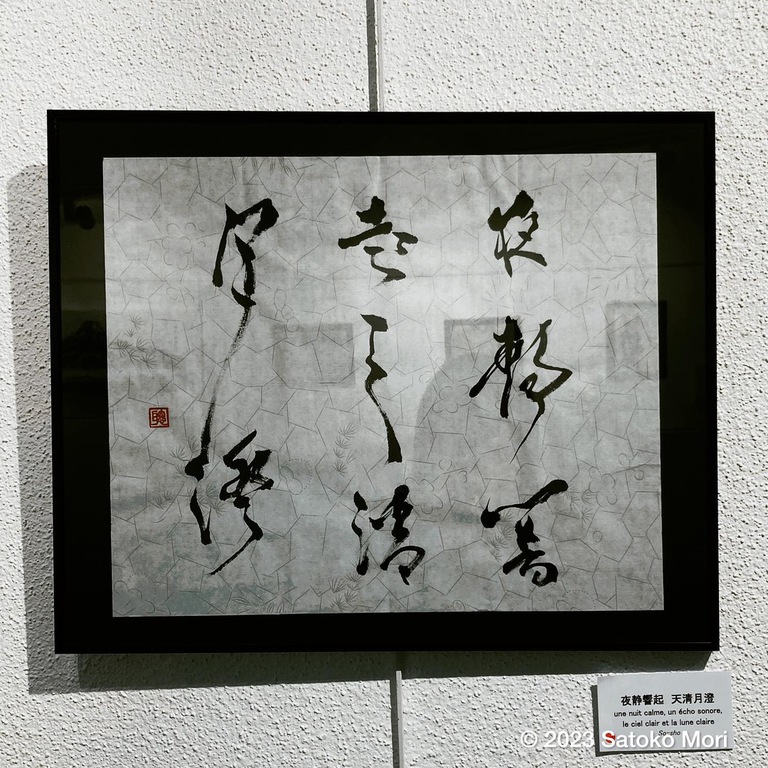 夜静響
起天清
月澄
夜静響起 天清月澄
une nuit calme, un écho sonore,
le ciel clair et la lune claire
So-sho
© 2023 Satoko Mori